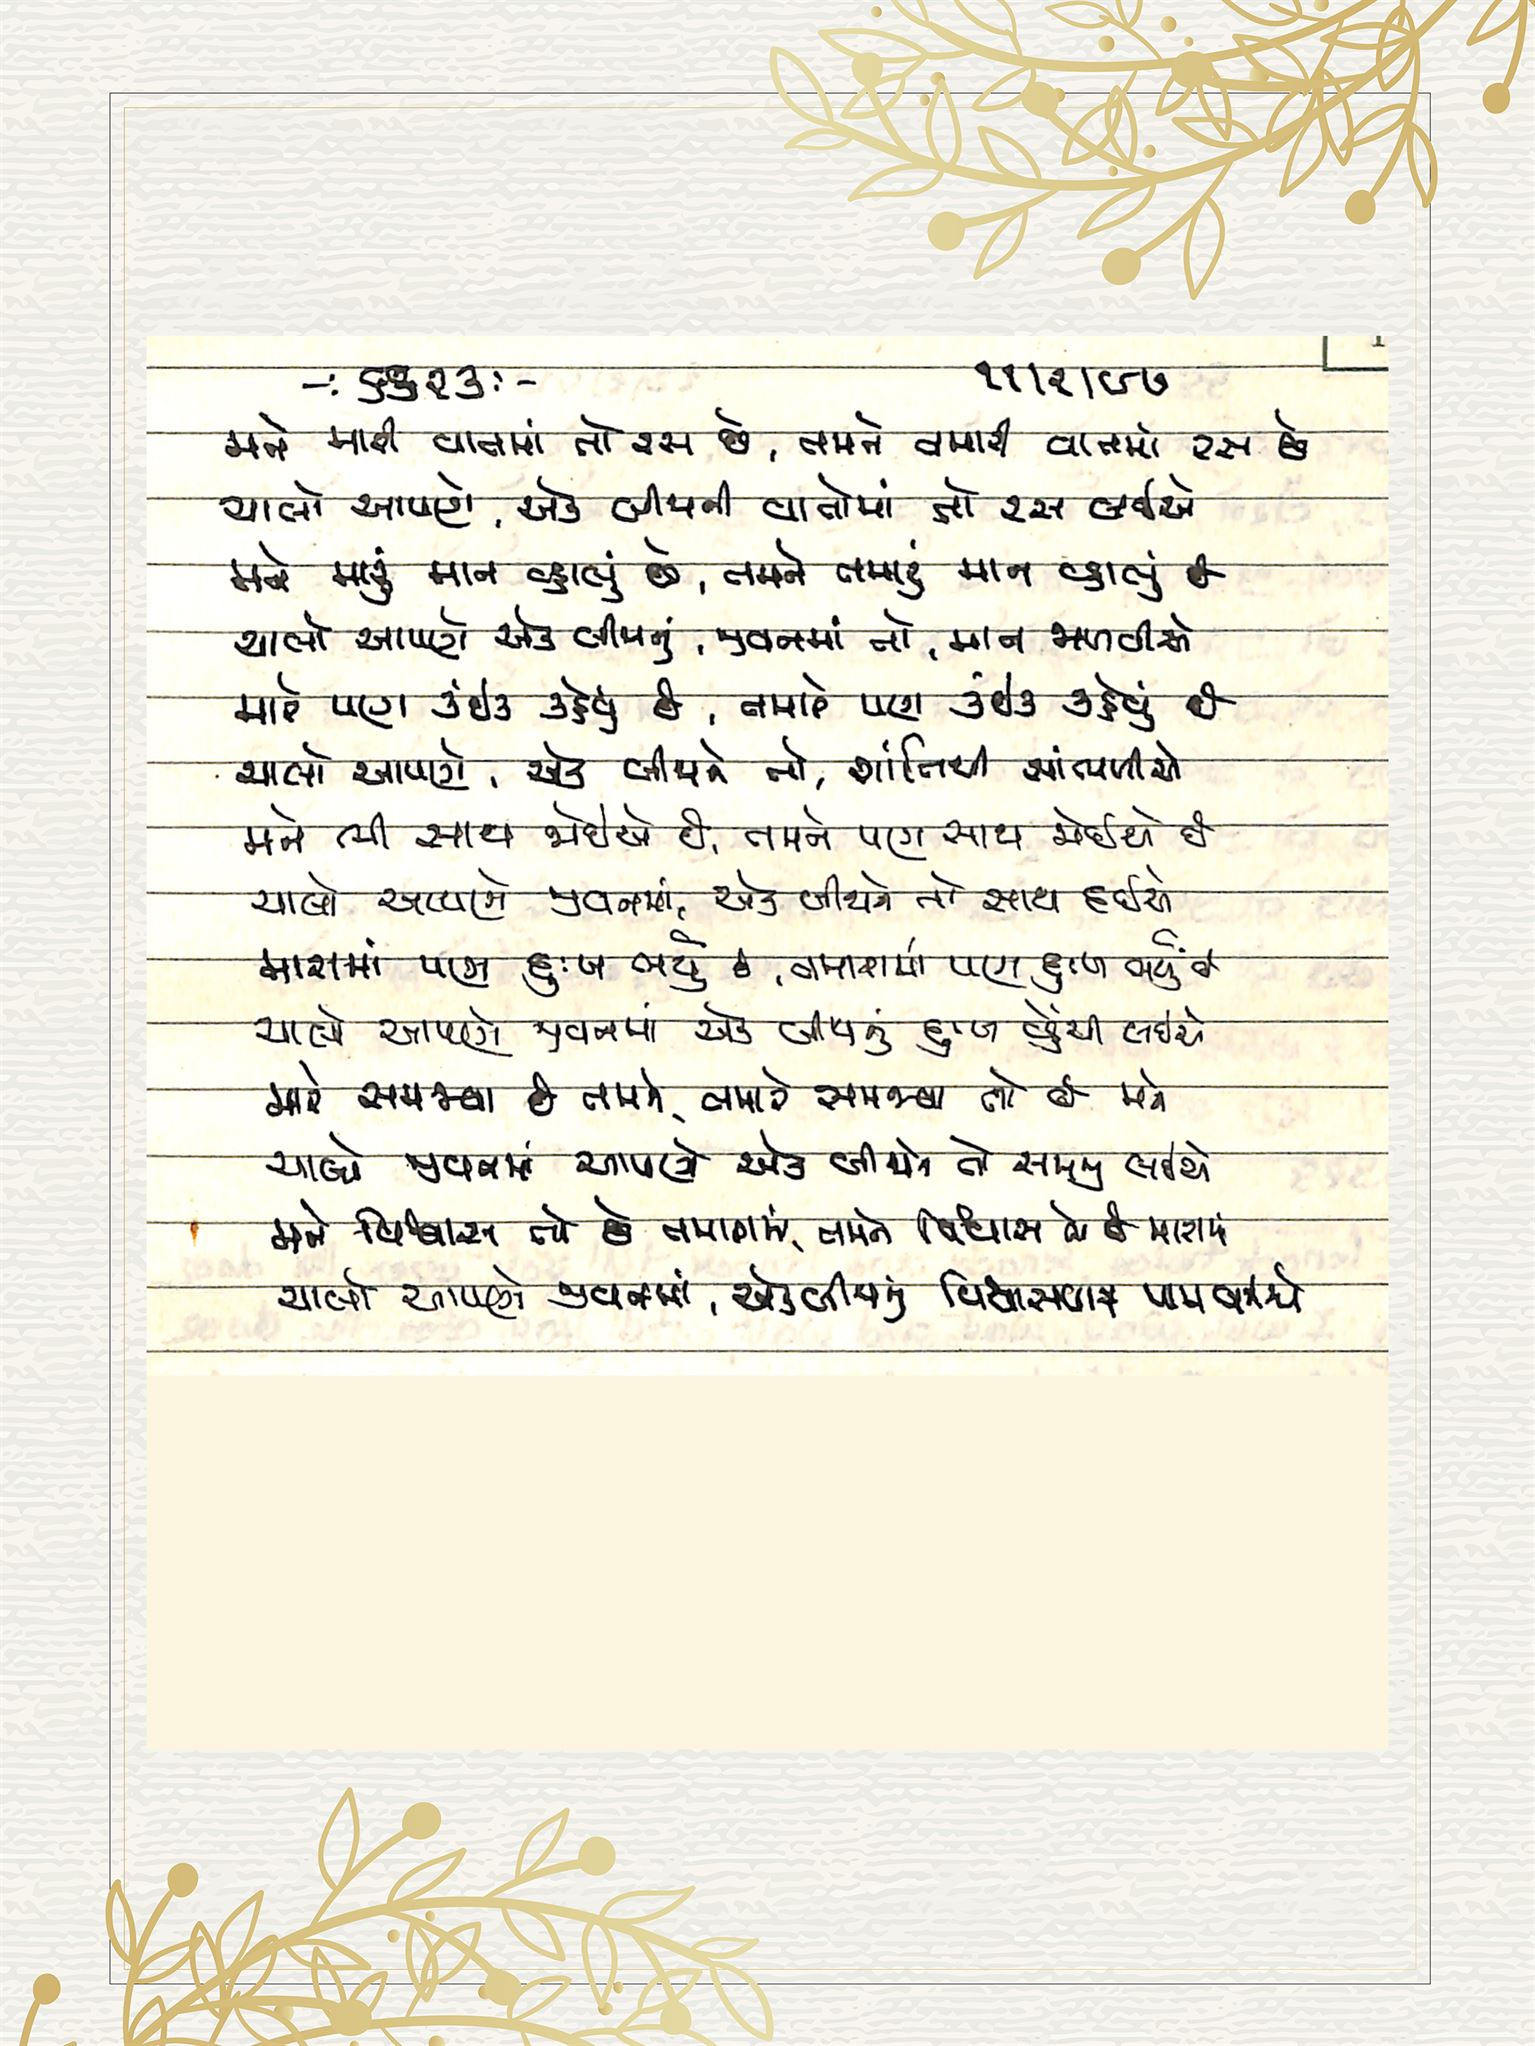 ૧૧/૨/૯૭
મને મારી વાતમાં તો રસ છે, તમને તમારી વાતમાં રસ છે
ચાલો આપણે, એક બીજાની વાતોમાં તો રસ લઈએ
મને મારું માન વ્હાલું છે, તમને તમારું માન વ્હાલું છે
ચાલો આપણે એક બીજાનું, જીવનમાં તો, માન જાળવીએ
મારે પણ કંઈક કહેવું છે, તમારે પણ કંઈક કહેવું છે
ચાલો આપણે, એક બીજાને તો, શાંતિથી સાંભળીએ
મને ભી સાથ જોઈએ છે, તમને પણ સાથ જોઈએ છે
ચાલો આપણે જીવનમાં, એક બીજાને તો સાથ દઈએ
મારામાં પણ દુઃખ ભર્યું છે, તમારામાં પણ દુઃખ ભર્યું છે
ચાલો આપણે જીવનમાં એક બીજાનું દુઃખ વ્હેંચી લઈએ
મારે સમજવા છે તમને, તમારે સમજવા તો છે મને
ચાલો જીવનમાં આપણે એક બીજાને તો સમજી લઈએ
મને વિશ્વાસ તો છે તમારામાં, તમને વિશ્વાસ તો છે મારામાં
ચાલો આપણે જીવનમાં, એક બીજાનું વિશ્વાસપાત્ર બનીએ